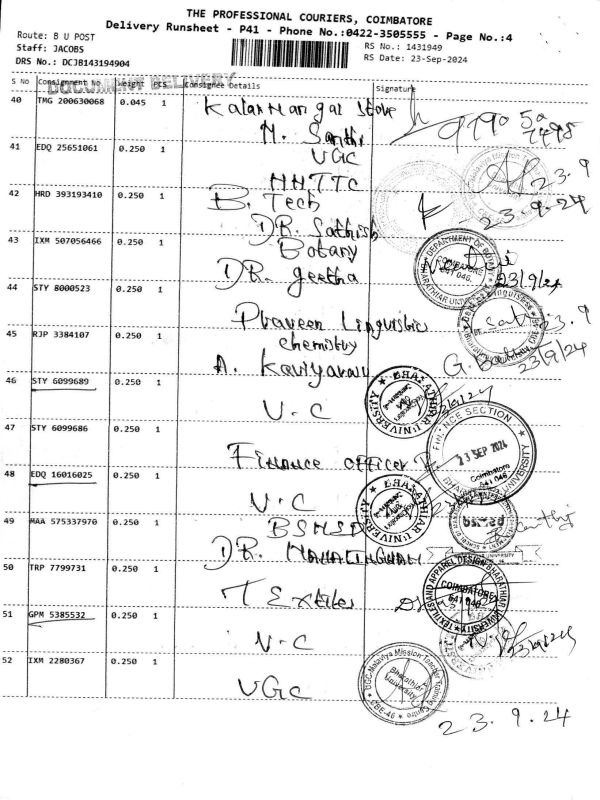 THE PROFESSIONAL COURIERS, COIMBATORE
Delivery Runsheet - P41 - Phone No.:0422-3505555 - Page No.:4
Route: B U POST
Staff: JACOBS
DRS No.: DCJB143194904
RS No.: 1431949
RS Date: 23-Sep-2024
DOCUMENT DELIVERY
S No Consignment No. Weight PCS Consignee Details Signature
40 TMG 200630068 0.045 1 Kalaimangal Store
M. Santhi
41 EDQ 25651061 0.250 1 UGC
HHTTC 23.9
42 HRD 393193410 0.250 1 B. Tech 23.9.24
DR. Sathish
43 IXM 507056466 0.250 1 Botany
DR. geetha 23/9/24
DEPARTMENT OF BOTANY
COIMBATORE
641 046.
BHARATHIAR UNIVERSITY
44 STY 8000523 0.250 1
Praveen Linguistic 23.9
45 RJP 3384107 0.250 1 chemistry
A. Kaviyarasu G. 23/9/24
46 STY 6099689 0.250 1
V.C
BHARATHIAR UNIVERSITY
47 STY 6099686 0.250 1
Finance officer
FINANCE SECTION
23 SEP 2024
Coimbatore
641 046
UNIVERSITY
48 EDQ 16016025 0.250 1
V.C
BHARATHIAR UNIVERSITY
49 MAA 575337970 0.250 1 BSMSD
DR. MAHALINGHAM
50 TRP 7799731 0.250 1
TExtiles
TEXTILES AND APPAREL DESIGN BHARATHIAR UNIVERSITY
COIMBATORE
641 046
51 GPM 5385532 0.250 1
V.C
52 IXM 2280367 0.250 1
UGC
UGC-Malaviya Mission Teacher Training Centre
Bharathiar
University
CBE-46
23.9.24